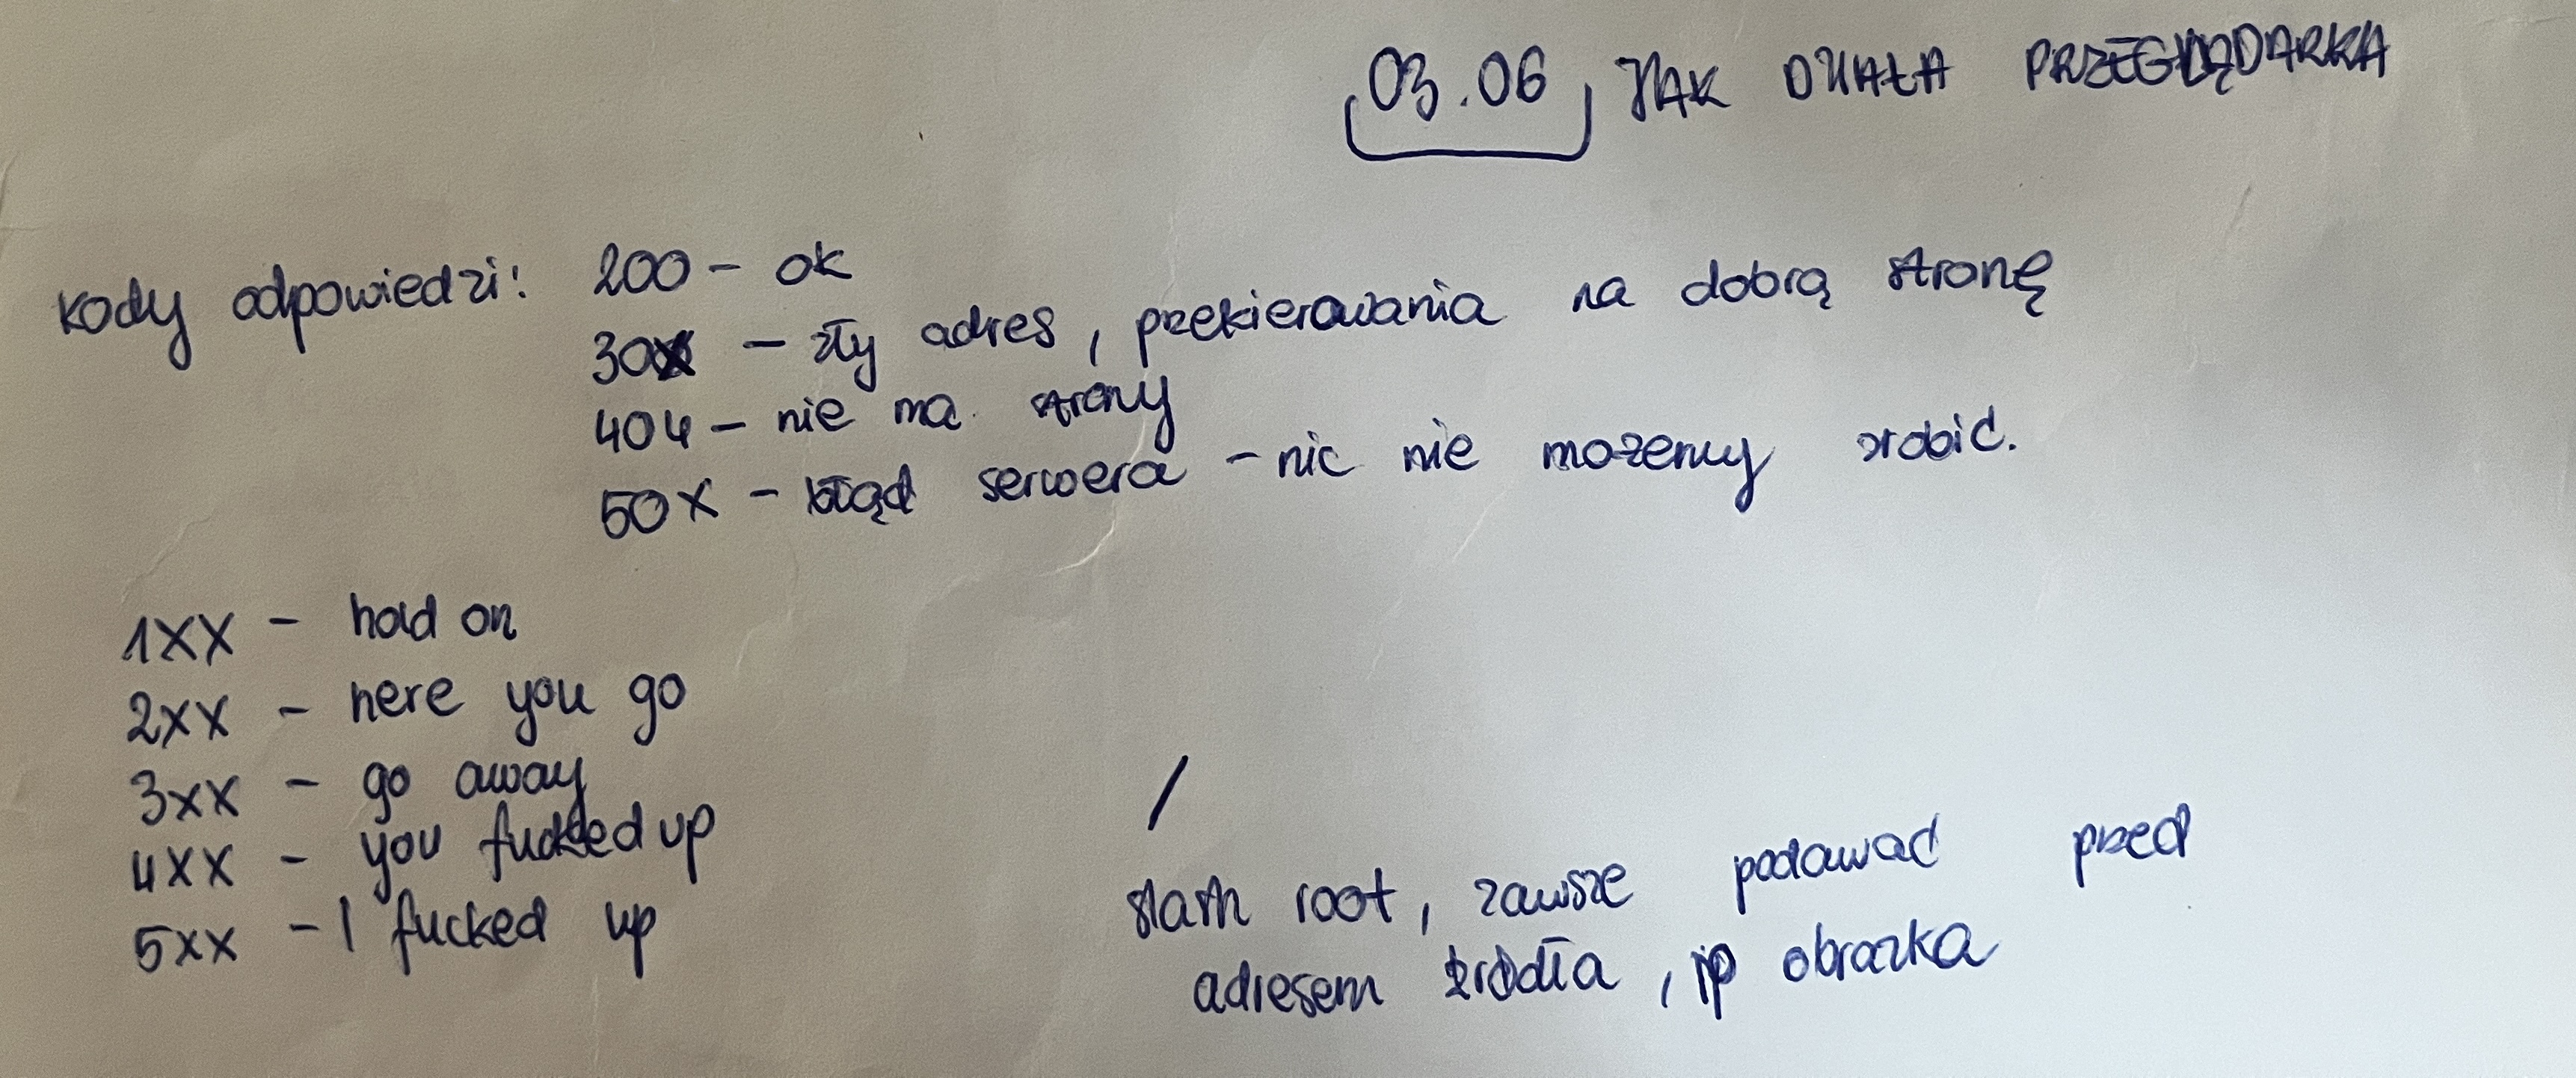 03.06 JAK DZIAŁA PRZEGLĄDARKA
kody odpowiedzi: 200 - ok
30X - zły adres, przekierowania na dobrą stronę
404 - nie ma strony
50X - błąd serwera - nic nie możemy zrobić.
1XX - hold on
2XX - here you go
3XX - go away
4XX - you fucked up
5XX - I fucked up
/
slash root, zawsze podawać przed
adresem źródła, np obrazka